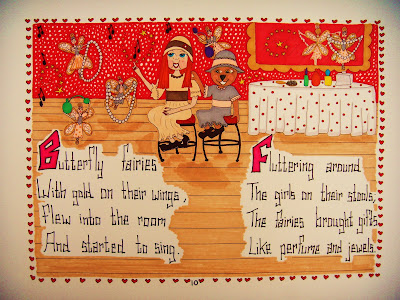 Butterfly fairies
With gold on their wings,
Flew into the room
And started to sing.
Fluttering around
The girls on their stools,
The fairies brought gifts
Like perfume and jewels.
10